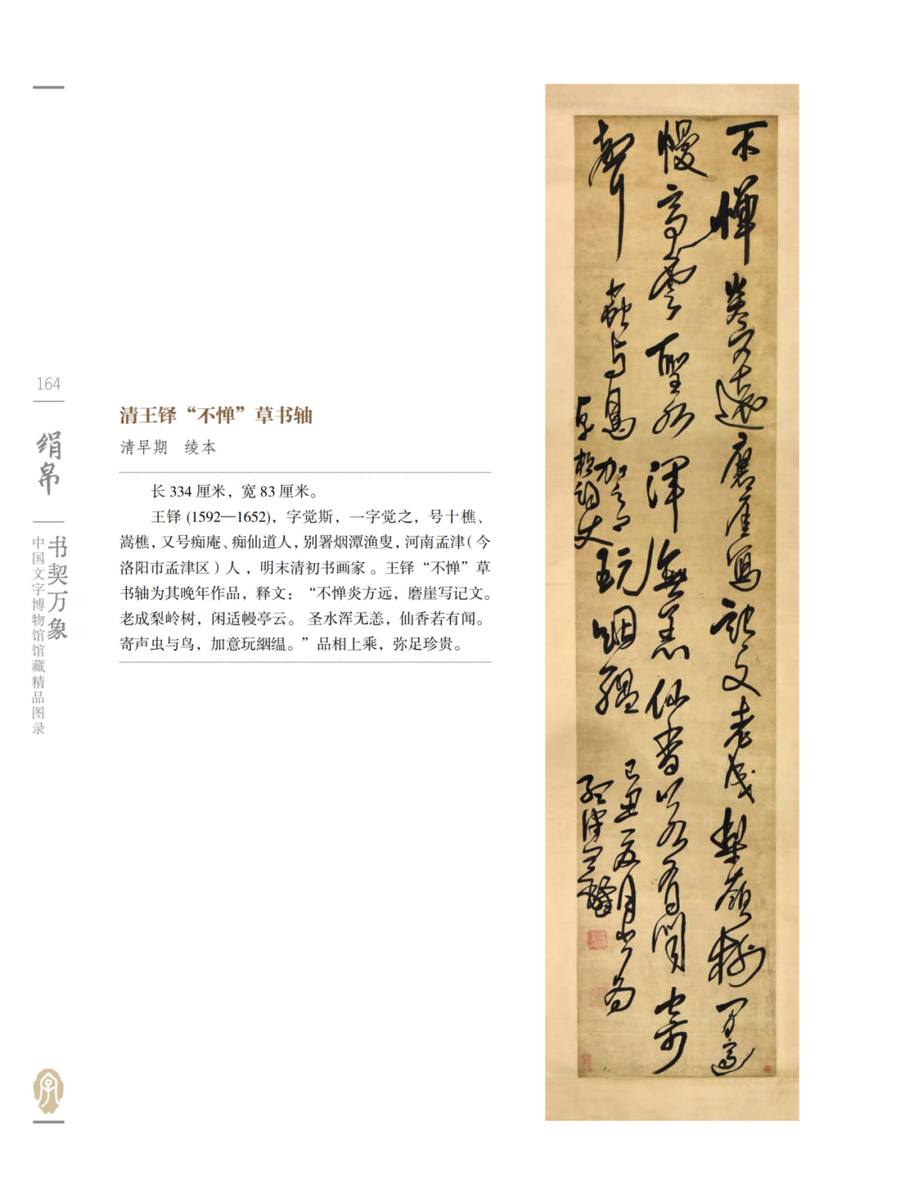 164
绢帛
书契万象
中国文字博物馆馆藏精品图录
清王铎“不惮”草书轴
清早期 绫本
长 334 厘米，宽 83 厘米。
王铎 (1592—1652)，字觉斯，一字觉之，号十樵、
嵩樵，又号痴庵、痴仙道人，别署烟潭渔叟，河南孟津（今
洛阳市孟津区）人，明末清初书画家 。王铎“不惮”草
书轴为其晚年作品，释文：“不惮炎方远，磨崖写记文。
老成梨岭树，闲适幔亭云。 圣水浑无恙，仙香若有闻。
寄声虫与鸟，加意玩絪缊。”品相上乘，弥足珍贵。
不憚炎方遠磨崖寫記文老成梨嶺樹閒適
幔亭雲聖水渾無恙仙香若有聞寄
聲蟲與鳥加意玩絪縕 己丑月書為
詞丈 孟津王鐸